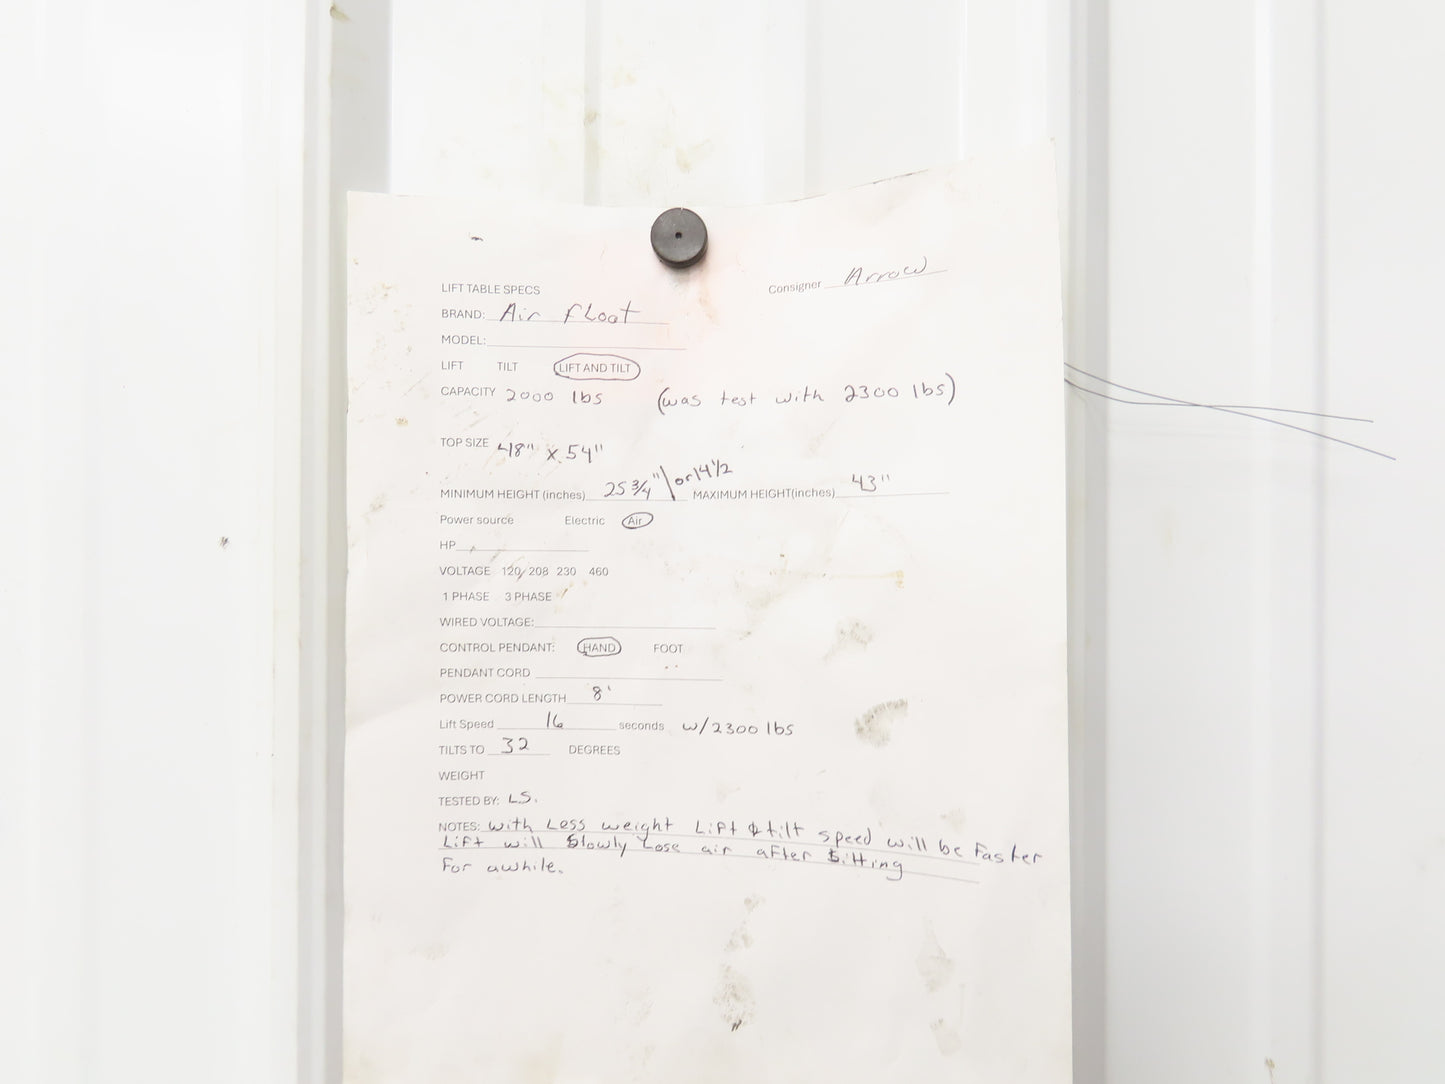 LIFT TABLE SPECS Consigner Arrow
BRAND: Air Float
MODEL:
LIFT TILT LIFT AND TILT
CAPACITY 2000 lbs (was test with 2300 lbs)
TOP SIZE 48" x 54"
MINIMUM HEIGHT (inches) 25 3/4" / or 14 1/2 MAXIMUM HEIGHT(inches) 43"
Power source Electric Air
HP
VOLTAGE 120/ 208 230 460
1 PHASE 3 PHASE
WIRED VOLTAGE:
CONTROL PENDANT: HAND FOOT
PENDANT CORD
POWER CORD LENGTH 8'
Lift Speed 16 seconds w/2300 lbs
TILTS TO 32 DEGREES
WEIGHT
TESTED BY: L.S.
NOTES: With Less weight Lift & tilt speed will be Faster
Lift will Slowly Lose air after Sitting
For awhile.